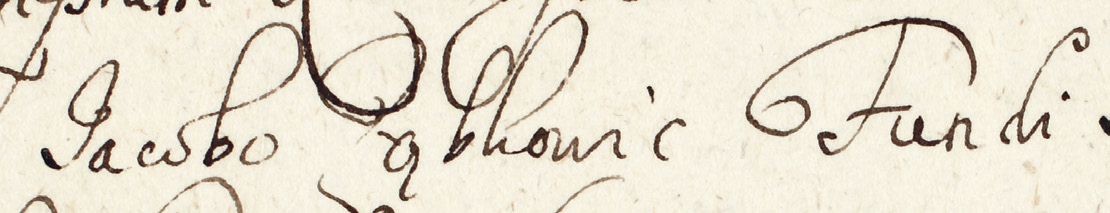 Jacobo Rybkowic Fundi